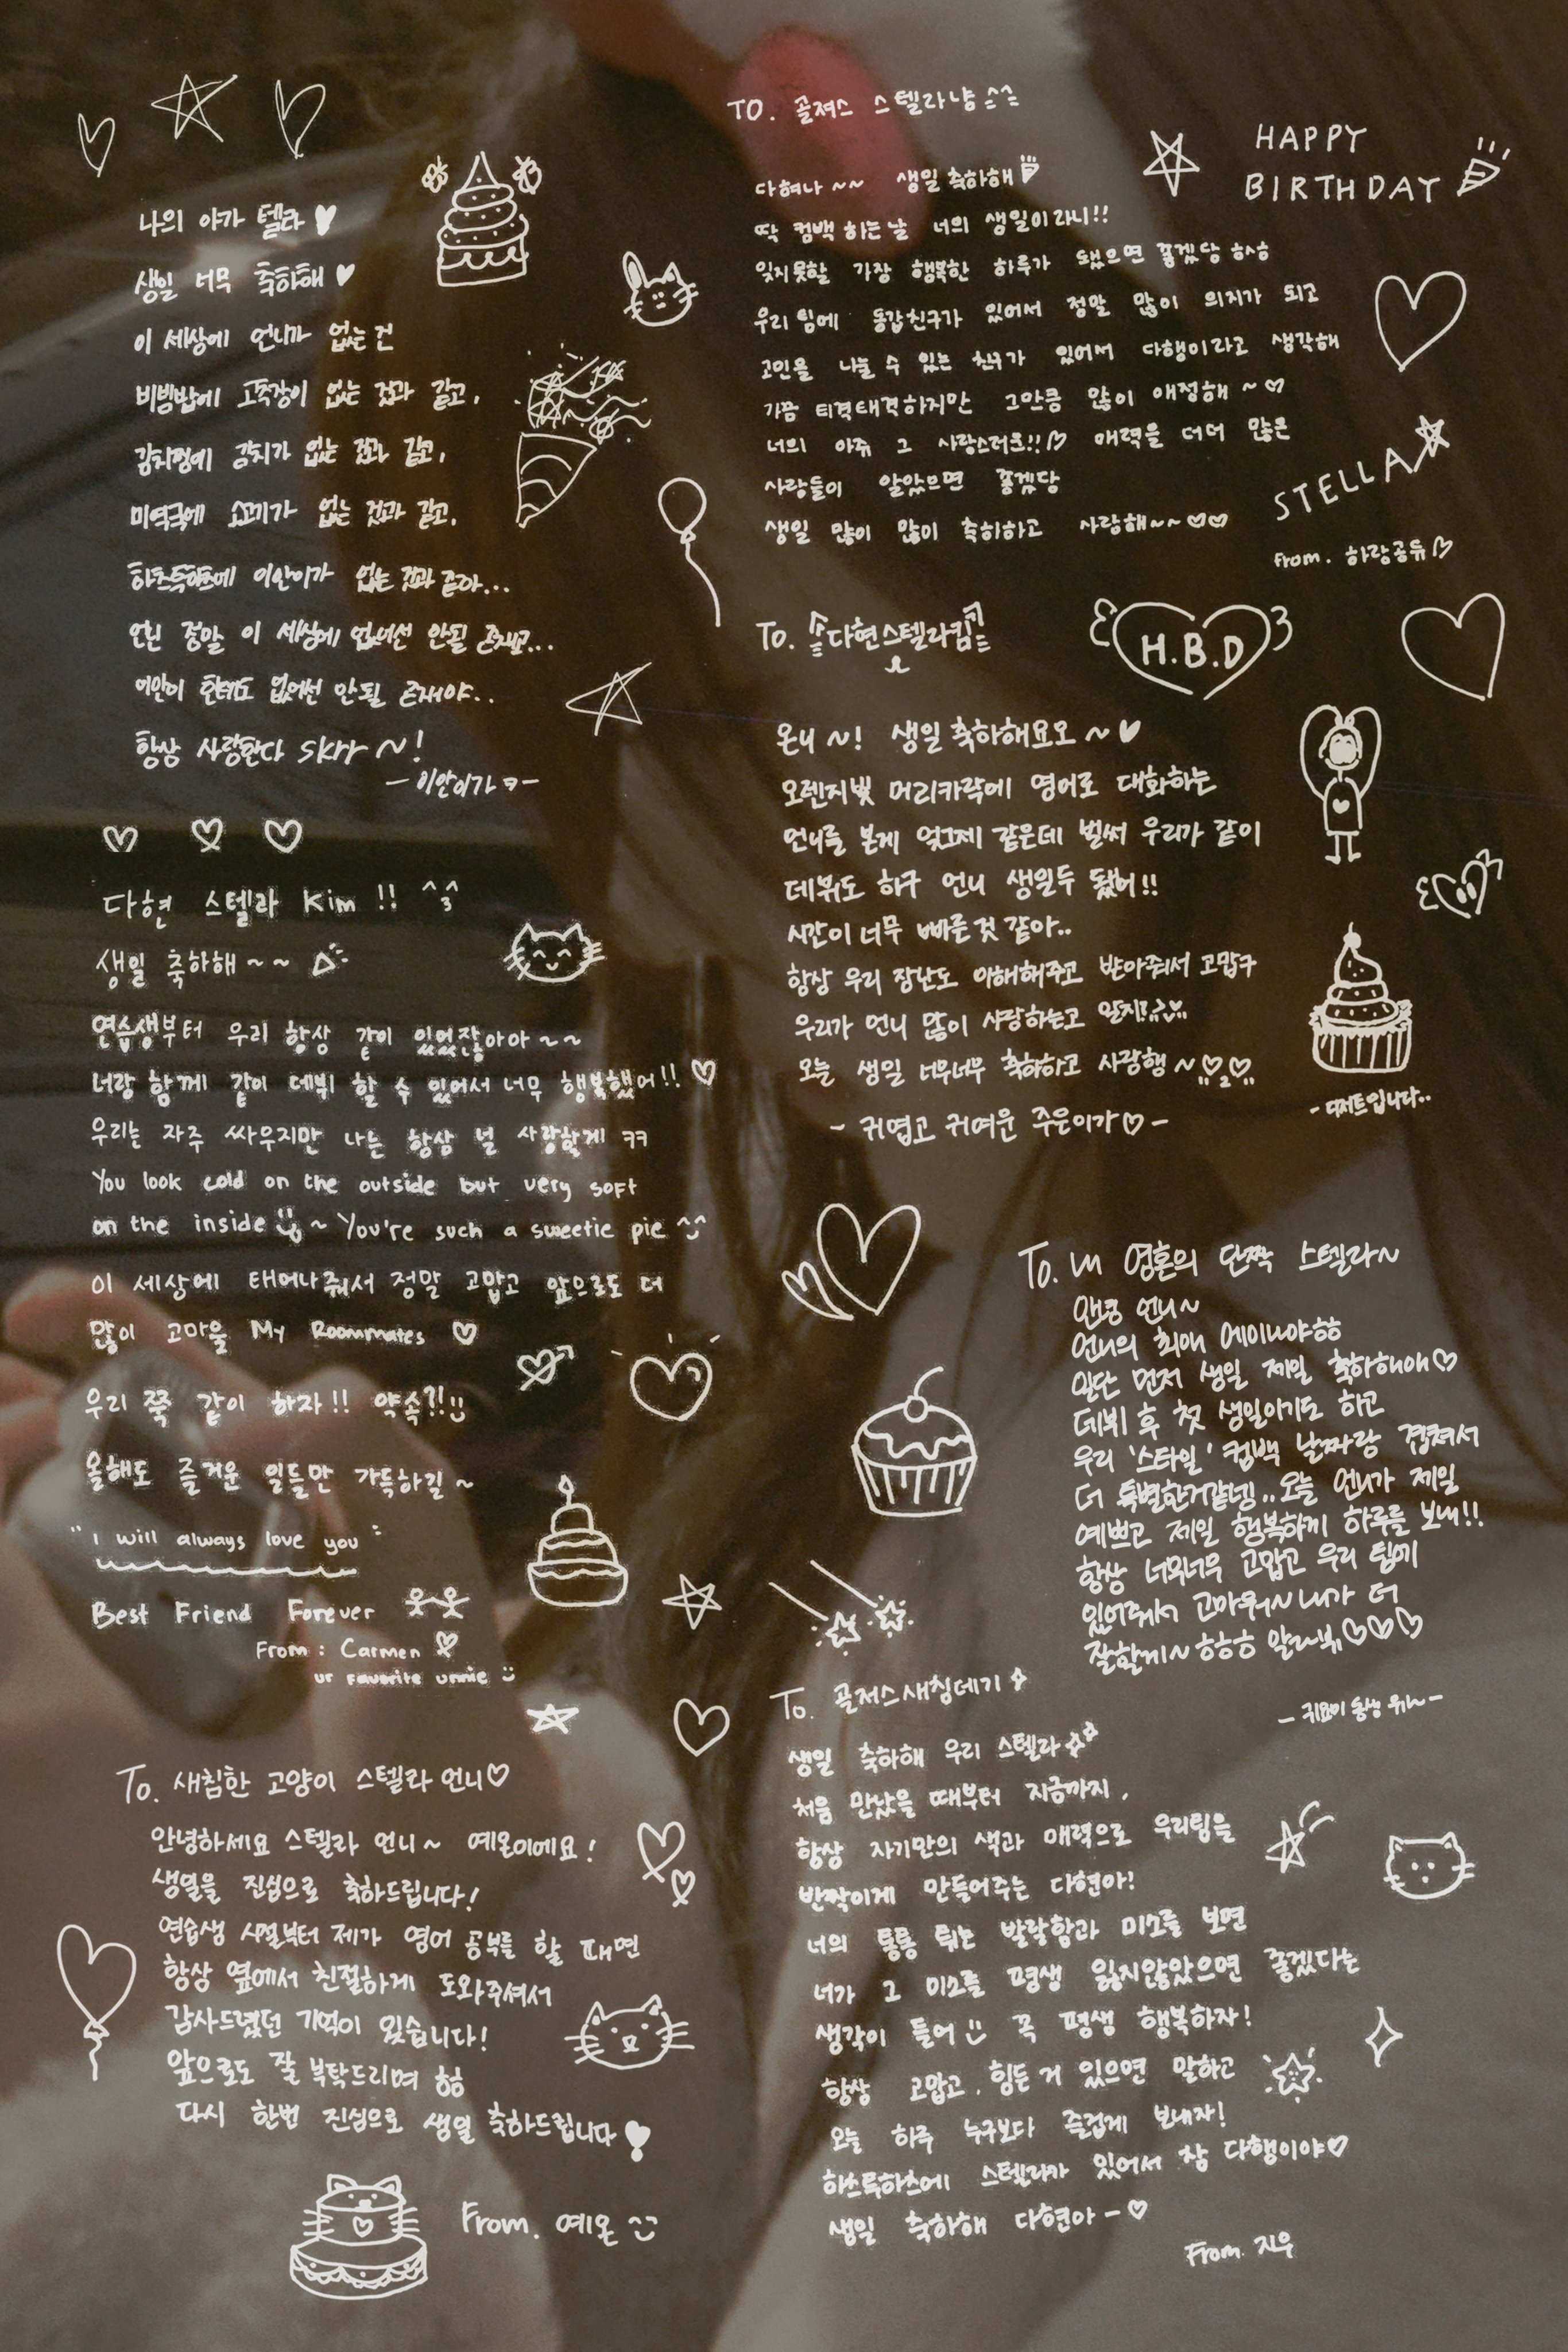 나의 아가 텔라♥
생일 너무 축하해♥
이 세상에 언니가 없는 건
비빔밥에 고추장이 없는 것과 같고,
김치찜에 김치가 없는 것과 같고,
미역국에 소고기가 없는 것과 같고,
하츠투하츠에 이안이가 없는 것과 같아...
언닌 정말 이 세상에 없어선 안될 존재고...
이안이 한테도 없어선 안될 존재야..
항상 사랑한다 skrr ~!
- 이안이가 ㅋ -
다현 스텔라 Kim !! ^3^
생일 축하해~~
연습생부터 우리 항상 같이 있었잖아아~~
너랑 함께 같이 데뷔 할 수 있어서 너무 행복했어!! ♡
우리는 자주 싸우지만 나는 항상 널 사랑할게 ㅋㅋ
You look cold on the outside but very soft
on the inside ~ You're such a sweetie pie
이 세상에 태어나줘서 정말 고맙고 앞으로도 더
많이 고마울 My Roommates ♡
우리 쭉 같이 하자!! 약속?!
올해도 즐거운 일들만 가득하길 ~
"I will always love you"
Best Friend Forever
From : Carmen ♡
ur favorite unnie
To. 새침한 고양이 스텔라 언니♡
안녕하세요 스텔라 언니~ 예온이에요!
생일을 진심으로 축하드립니다!
연습생 시절부터 제가 영어 공부를 할 때면
항상 옆에서 친절하게 도와주셔서
감사드렸던 기억이 있습니다!
앞으로도 잘 부탁드리며 ㅎㅎ
다시 한번 진심으로 생일 축하드립니다
From. 예온
TO. 골져스 스텔라냥 ^^
HAPPY
BIRTHDAY
다혀나~~ 생일 축하해
딱 컴백 하는 날 너의 생일이라니!!
잊지못할 가장 행복한 하루가 됐으면 좋겠당 하하
우리 팀에 동갑친구가 있어서 정말 많이 의지가 되고
고민을 나눌 수 있는 친구가 있어서 다행이라고 생각해
가끔 티격태격하지만 그만큼 많이 애정해 ~♡
너의 아쥬 그 사랑스러운!!♡ 매력을 더더 많은
사람들이 알았으면 좋겠당
생일 많이 많이 축하하고 사랑해~~♡♡
STELLA
from. 하랑공듀♡
To. 다현스텔라킴
H.B.D
온니 ~! 생일 축하해요오 ~♥
오렌지빛 머리카락에 영어로 대화하는
언니를 본게 엊그제 같은데 벌써 우리가 같이
데뷔도 하구 언니 생일두 됐어!!
시간이 너무 빠른 것 같아..
항상 우리 장난도 이해해주고 받아줘서 고맙구
우리가 언니 많이 사랑하는고 알지?
오늘 생일 너무너무 축하하고 사랑행 ~♡♡
- 디저트입니다..
- 귀엽고 귀여운 주은이가♡ -
To. 내 영혼의 단짝 스텔라~
안녕 언니~
언니의 최애 에이나야ㅎㅎ
일단 먼저 생일 제일 축하해애♡
데뷔 후 첫 생일이기도 하고
우리 '스타일' 컴백 날짜랑 겹쳐서
더 특별한거같넹..오늘 언니가 제일
예쁘고 제일 행복하게 하루를 보내!!
항상 너무너무 고맙고 우리 팀에
있어줘서 고마워~ 내가 더
잘할게~ ㅎㅎㅎ 알라뷰♡♡♡
- 귀요미 동생 -
To. 골져스새침데기
생일 축하해 우리 스텔라
처음 만났을 때부터 지금까지,
항상 자기만의 색과 매력으로 우리팀을
반짝이게 만들어주는 다현아!
너의 통통 튀는 발랄함과 미소를 보면
너가 그 미소를 평생 잃지않았으면 좋겠다는
생각이 들어 꼭 평생 행복하자!
항상 고맙고, 힘든 거 있으면 말하고
오늘 하루 누구보다 즐겁게 보내자!
하츠투하츠에 스텔라가 있어서 참 다행이야♡
생일 축하해 다현아-♡
From. 지우